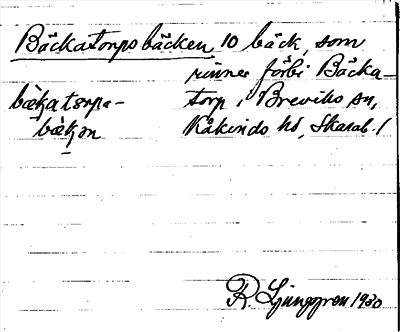 Bäckatorpsbäcken 10 bäck, som
rinner förbi Bäcka-
torp, Breviks sn,
Kåkinds hd, Skarab. l
bäkatorps-
bäkən
R. Ljunggren 1930